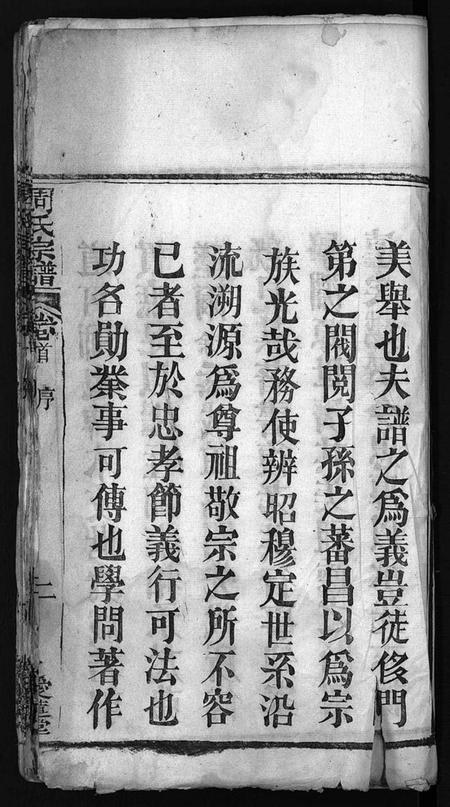 美舉也夫譜之爲義豈徒侈門
第之閥閱子孫之蕃昌以爲宗
族光哉務使辨昭穆定世系沿
流溯源爲尊祖敬宗之所不容
已者至於忠孝節義行可法也
功名勛業事可傳也學問著作
周氏宗譜 卷首 序 二